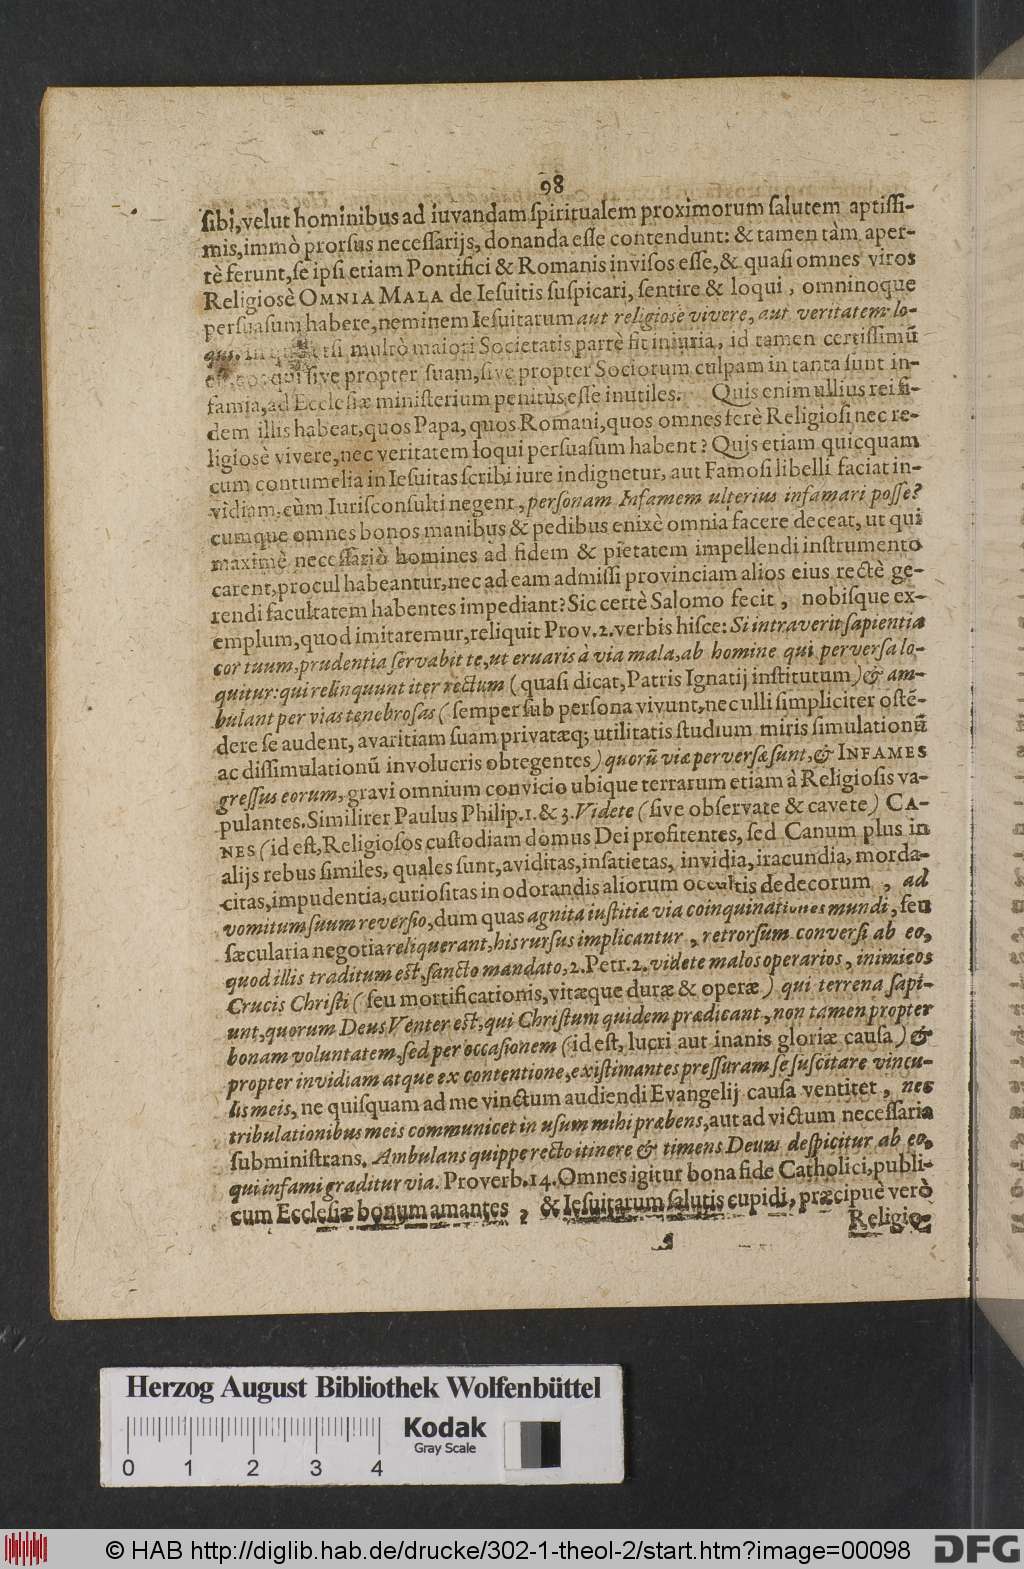 98
sibi, velut hominibus ad iuvandam spiritualem proximorum salutem aptissi-
mis, immò prorsus necessarijs, donanda esse contendunt: & tamen tàm aper-
tè ferunt, se ipsi etiam Pontifici & Romanis invisos esse, & quasi omnes viros
Religiosè OMNIA MALA de Iesuitis suspicari, sentire & loqui, omninoque
persuasum habere, neminem Iesuitarum aut religiose vivere, aut veritatem lo-
qui. In etsi multò maiori Societatis parte fit iniuria, id tamen certissimũ
qui sive propter suam, sive propter Sociorum culpam in tanta sunt in-
famia, ad Ecclesiæ ministerium penitus esse inutiles. Quis enim ullius rei fi-
dem illis habeat, quos Papa, quos Romani, quos omnes ferè Religiosi nec re-
ligiosè vivere, nec veritatem loqui persuasum habent? Quis etiam quicquam
cum contumelia in Iesuitas scribi iure indignetur, aut Famosi libelli faciat in-
vidiam, cùm Iurisconsulti negent, personam Infamem ulterius infamari posse?
cumque omnes bonos manibus & pedibus enixè omnia facere deceat, ut qui
maximè necessariò homines ad fidem & pietatem impellendi instrumento
carent, procul habeantur, nec ad eam admissi provinciam alios eius rectè ge-
rendi facultatem habentes impediant? Sic certè Salomo fecit, nobisque ex-
emplum, quod imitaremur, reliquit Prov. 2. verbis hisce: Si intraverit sapientia
cor tuum, prudentia servabit te, ut eruaris à via mala, ab homine qui perversa lo-
quitur: qui relinquunt iter rectum (quasi dicat, Patris Ignatij institutum) & am-
bulant per vias tenebrosas (semper sub persona vivunt, nec ulli simpliciter ostẽ-
dere se audent, avaritiam suam privatæq; utilitatis studium miris simulationũ
ac dissimulationũ involucris obtegentes) quorũ viæ perversæ sunt, & INFAMES
gressus eorum, gravi omnium convicio ubique terrarum etiam à Religiosis va-
pulantes. Similiter Paulus Philip. 1. & 3. Videte (sive observate & cavete) CA-
NES (id est, Religiosos custodiam domus Dei profitentes, sed Canum plus in
alijs rebus similes, quales sunt, aviditas, insatietas, invidia, iracundia, morda-
citas, impudentia, curiositas in odorandis aliorum occultis dedecorum, ad
vomitum suum reversio, dum quas agnita iustitiæ via coinquinationes mundi, seu
sæcularia negotia reliquerant, his rursus implicantur, retrorsum conversi ab eo,
quod illis traditum est, sancto mandato, 2. Petr. 2. videte malos operarios, inimicos
Crucis Christi (seu mortificationis, vitæque duræ & operæ) qui terrena sapi-
unt, quorum Deus Venter est, qui Christum quidem prædicant, non tamen propter
bonam voluntatem, sed per occasionem (id est, lucri aut inanis gloriæ causa) &
propter invidiam atque ex contentione, existimantes pressuram se suscitare vincu-
lis meis, ne quisquam ad me vinctum audiendi Evangelij causa ventitet, nec
tribulationibus meis communicet in usum mihi præbens, aut ad victum necessaria
subministrans. Ambulans quippe recto itinere & timens Deum despicitur ab eo,
qui infami graditur via. Proverb. 14. Omnes igitur bona fide Catholici, publi-
cum Ecclesiæ bonum amantes, & Iesuitarum salutis cupidi, præcipuè verò
Religio-
Herzog August Bibliothek Wolfenbüttel
Kodak
Gray Scale
0 1 2 3 4
© HAB http://diglib.hab.de/drucke/302-1-theol-2/start.htm?image=00098
DFG